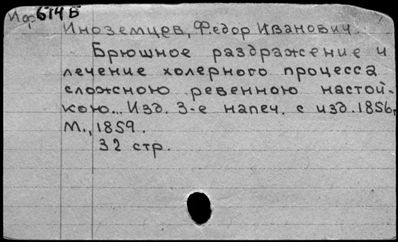 Иф 674 Б
Иноземцев, Федор Иванович.
Брюшное раздражение и
лечение холерного процесса
сложною ревенною настой-
кою... Изд. 3-е напеч. с изд. 1856г
М., 1859.
32 стр.